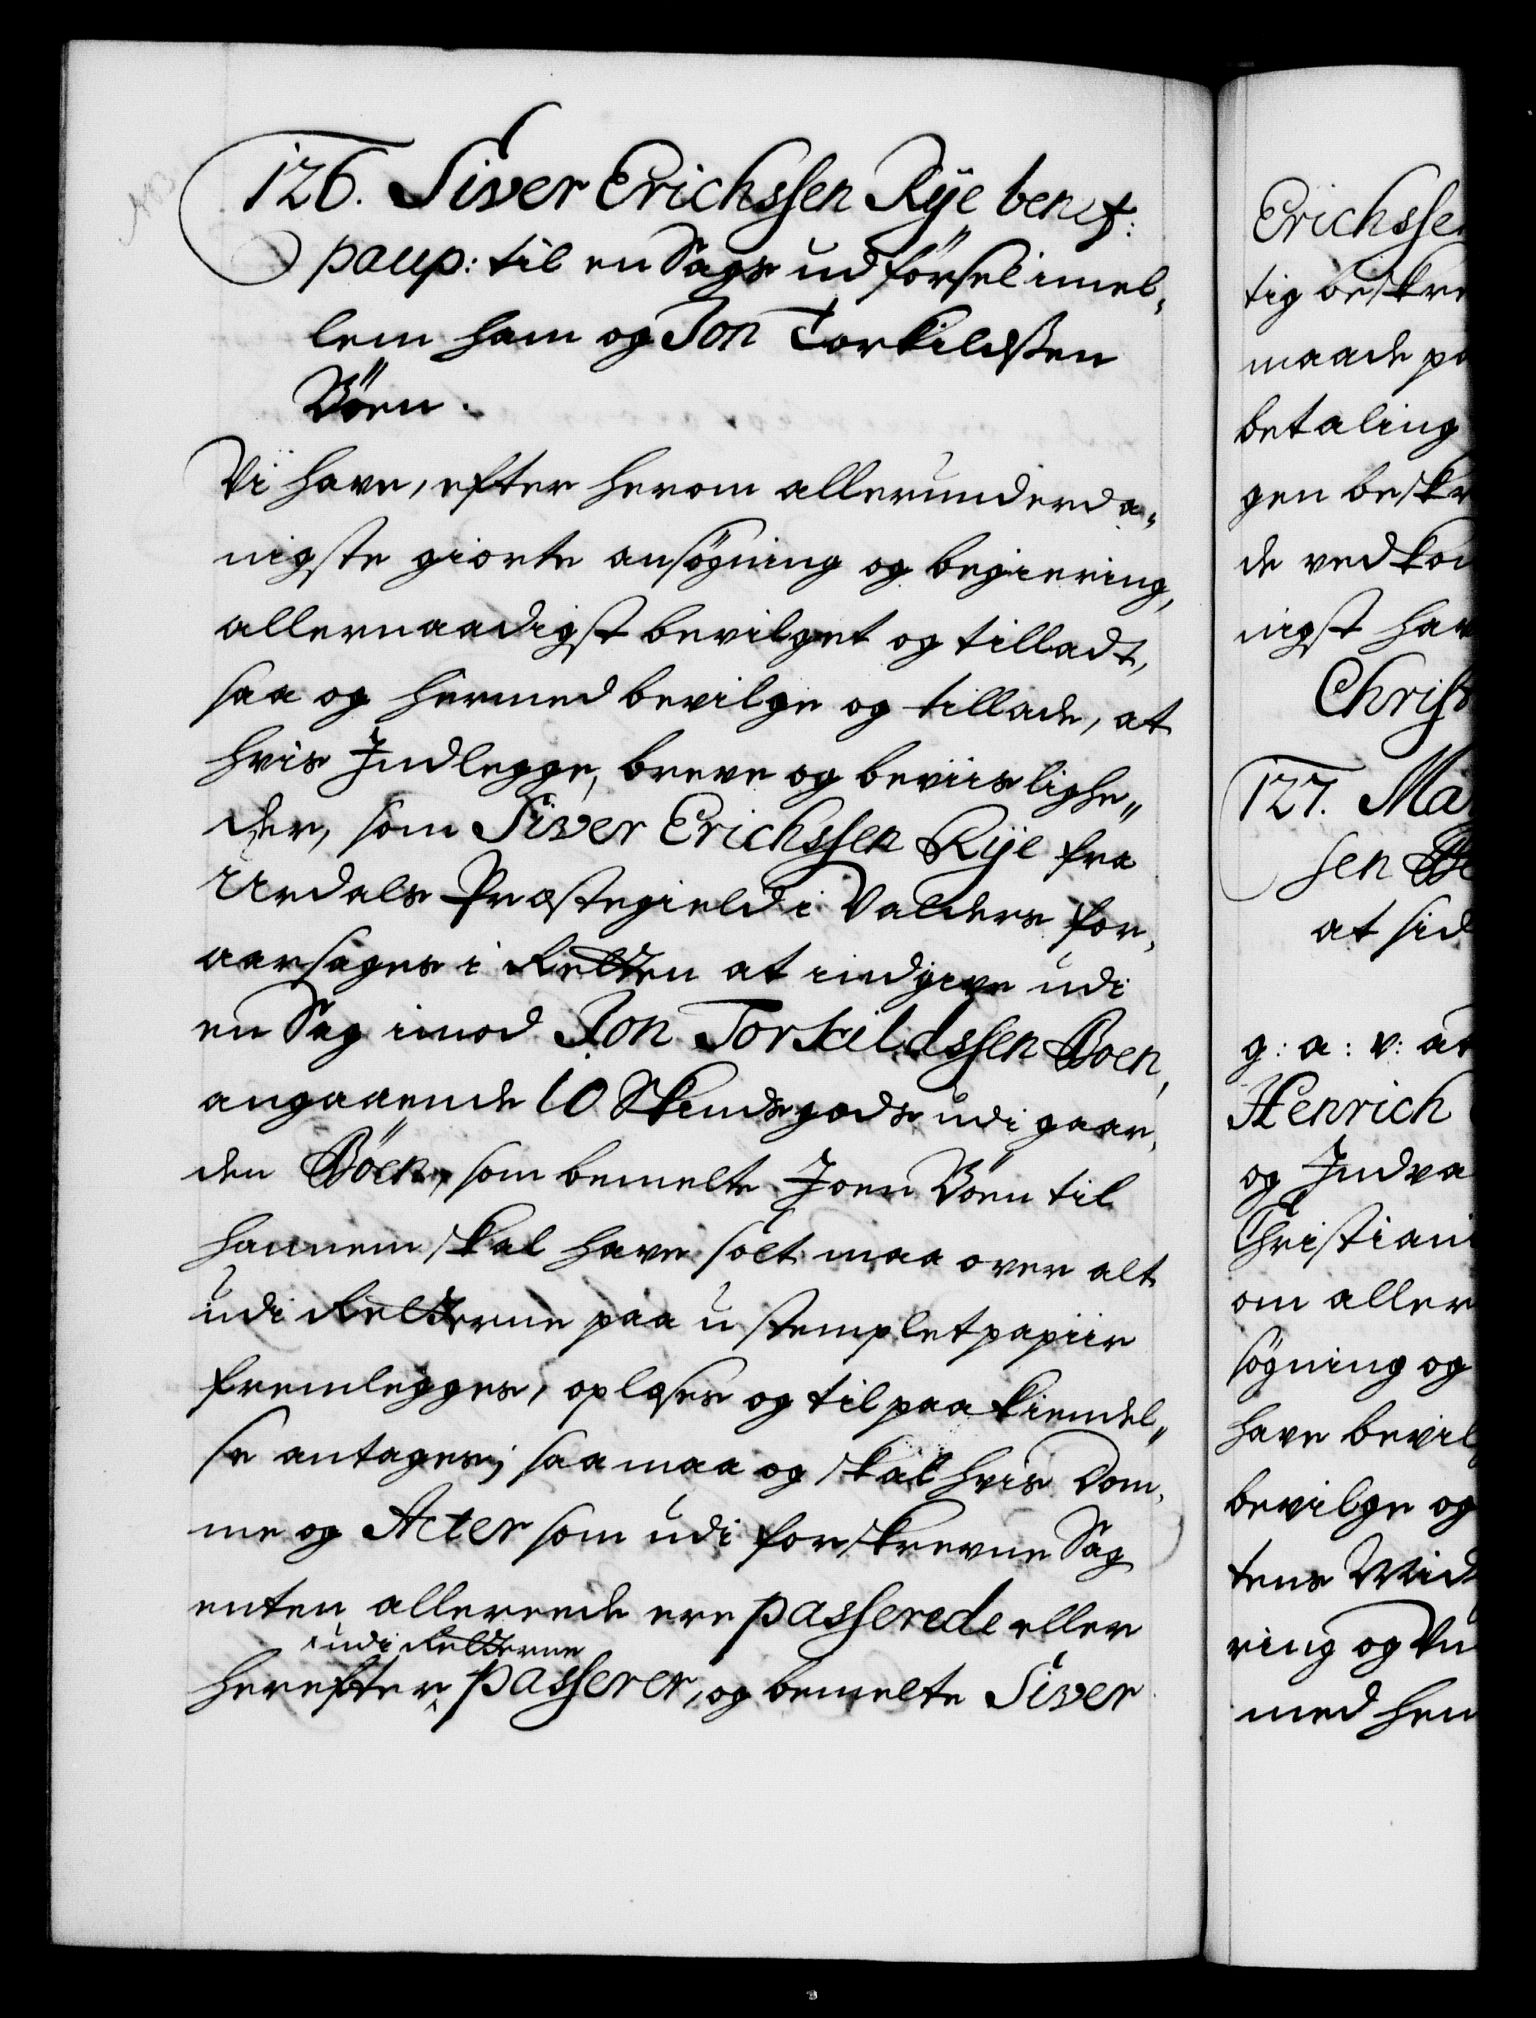 126. Siver Erichssen Rÿe benef:
paup: til en Sags udförsel imel-
lem ham og Jon Torkildssen
Böen.
Vi have, efter herom allerunderda-
nigste giorte ansögning og begiering,
allernaadigst bevilget og tilladt,
saa og hermed bevilge og tillade, at
hvis Indlegge, breve og beviisslighe-
der, som Siver Erichssen Rÿe fra
Urdals Præstegield i Valders for-
aarsages i Retten at indgive udi
en Sag imod Jon Torkildssen Böen,
angaaende 10 Skinds gods udi gaar-
den Böen, som bemelte Joen Böen til
hannem skal have solt maa over alt
udi Retterne paa ustemplet papiir
fremlegges, oplæses og til paakiendel-
se antages; saa maa og skal hvis Dom-
me og Acter som udi forskrevne Sag
enten allereede ere passerede eller
udi Retterne
herefter passerer, og bemelte Siver
Erichssen
tig beskre
maade pa
betaling
gen beskr
de vedkom
nigst hav
Christ
127. Mar
sen
at sid
g: a: v: at
Henrich
og Indva
Christiani
om aller
sögning og
have bevilg
bevilge og
tens Mid
ring og Un
med hen